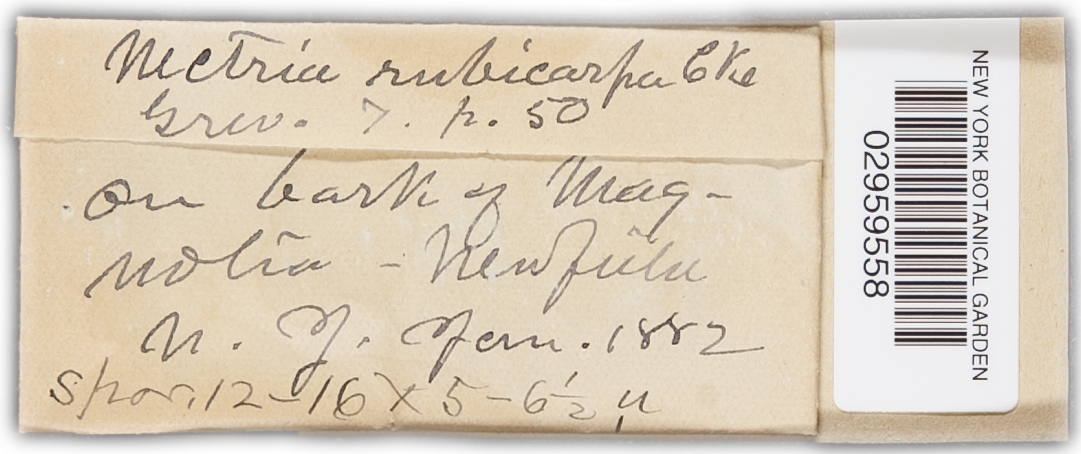 Nectria rubicarpa Cke
Grev. 7. p. 50
on bark of Mag-
nolia - Newfield
N. J. Jan. 1882
spor. 12-16 x 5-6½ µ
NEW YORK BOTANICAL GARDEN
02959558